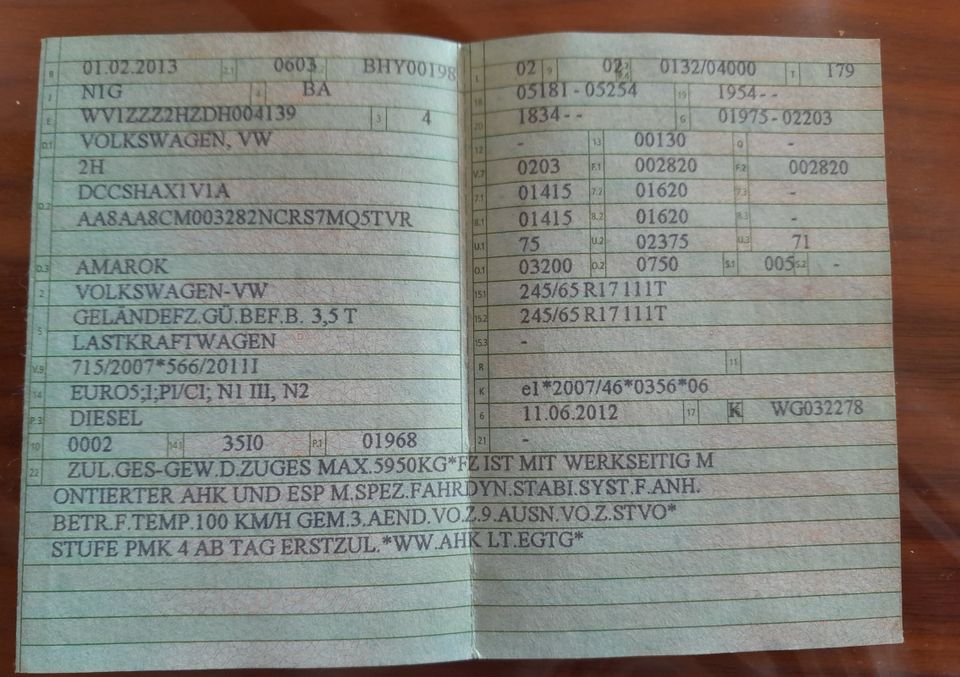 B 01.02.2013 2.1 0603 BHY00198
J N1G 4 BA
E WV1ZZZ2HZDH004139 3 4
D.1 VOLKSWAGEN, VW
2H
D.2 DCCSHAX1V1A
AA8AA8CM003282NCRS7MQ5TVR
D.3 AMAROK
2 VOLKSWAGEN-VW
GELÄNDEFZ.GÜ.BEF.B. 3,5 T
5 LASTKRAFTWAGEN
V.9 715/2007*566/2011I
14 EURO5;I;PI/CI; N1 III, N2
P.3 DIESEL
10 0002 14.1 35I0 P.1 01968
L 02 9 02 P.2 P.4 0132/04000 T 179
18 05181-05254 19 1954--
20 1834-- G 01975-02203
12 - 13 00130 Q -
V.7 0203 F.1 002820 F.2 002820
7.1 01415 7.2 01620 7.3 -
8.1 01415 8.2 01620 8.3 -
U.1 75 U.2 02375 U.3 71
O.1 03200 O.2 0750 S.1 005 S.2 -
15.1 245/65 R17 111T
15.2 245/65 R17 111T
15.3 -
R 11
K e1*2007/46*0356*06
6 11.06.2012 17 K WG032278
21 -
22 ZUL.GES-GEW.D.ZUGES MAX.5950KG*FZ IST MIT WERKSEITIG M
ONTIERTER AHK UND ESP M.SPEZ.FAHRDYN.STABI.SYST.F.ANH.
BETR.F.TEMP.100 KM/H GEM.3.AEND.VO.Z.9.AUSN.VO.Z.STVO*
STUFE PMK 4 AB TAG ERSTZUL.*WW.AHK LT.EGTG*